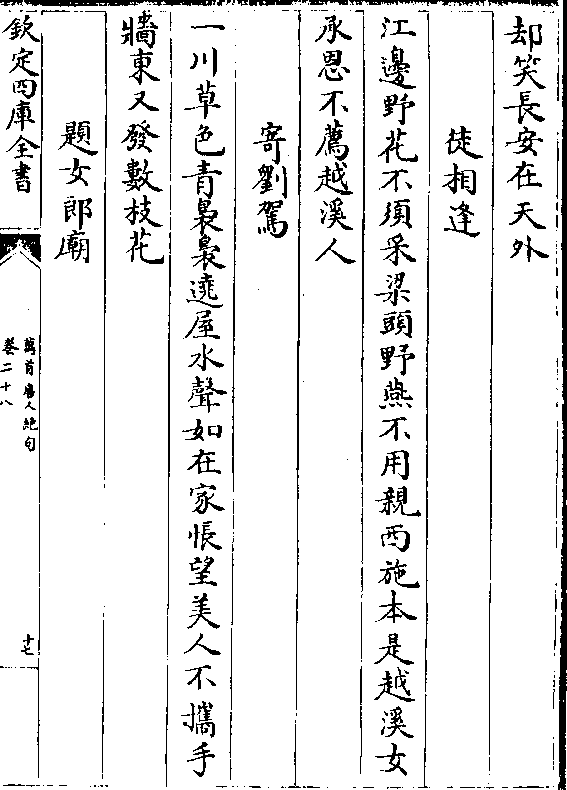 却笑長安在天外
徒相逢
江邊野花不須采梁頭野燕不用親西施本是越溪女
承恩不薦越溪人
寄劉駕
一川草色青裊裊遶屋水聲如在家悵望美人不攜手
牆東又發數枝花
題女郎廟
欽定四庫全書
萬首唐人絶句
卷二十八
十七